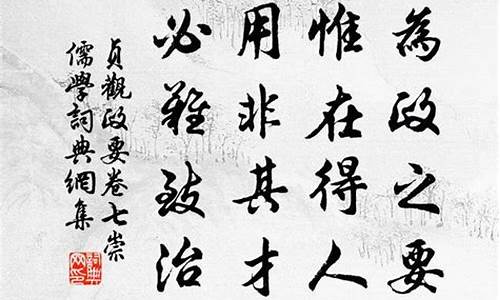 為政之要
惟在得人
用非其才
必難致治
貞觀政要卷七崇
儒學詞典網集